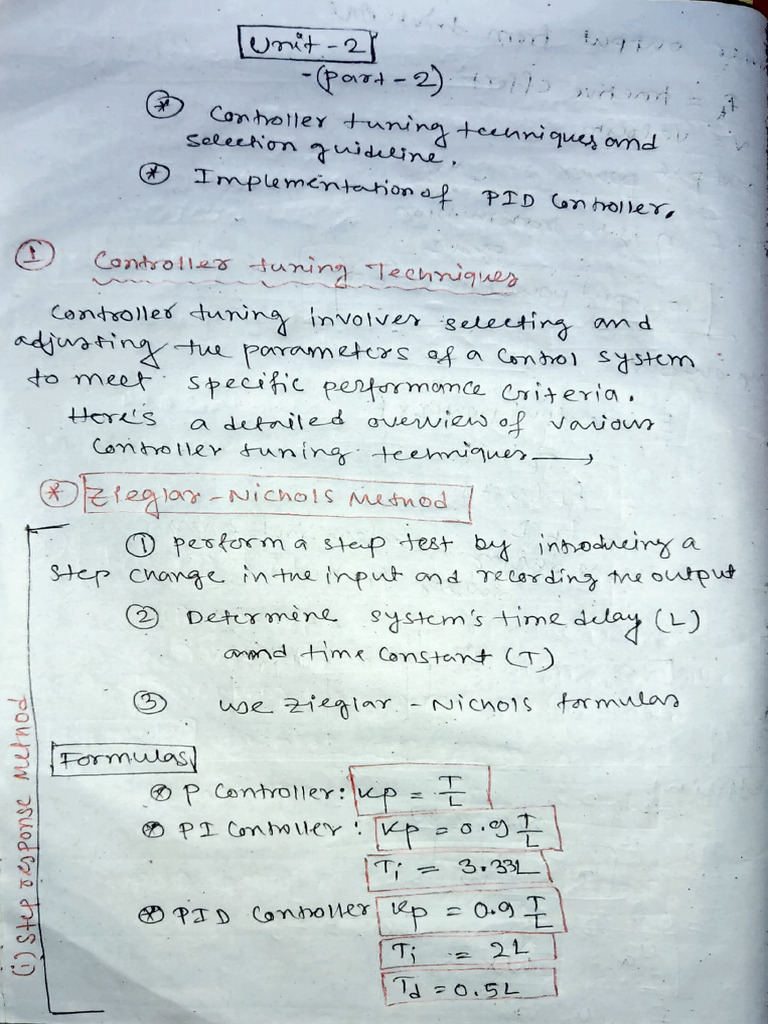 Unit-2
-(Part-2)
* Controller tuning techniques and
selection guideline.
* Implementation of PID Controller.
1 Controller tuning Techniques
Controller tuning involves selecting and
adjusting the parameters of a control system
to meet specific performance criteria.
Here's a detailed overview of various
Controller tuning techniques →
* Zieglar-Nichols Method
(i) Step response Method
1 perform a step test by introducing a
step change in the input and recording the output
2 Determine system's time delay (L)
and time constant (T)
3 use Zieglar-Nichols formulas
Formulas
* P Controller: Kp = T/L
* PI Controller: Kp = 0.9 T/L
Ti = 3.33L
* PID Controller Kp = 0.9 T/L
Ti = 2L
Td = 0.5L